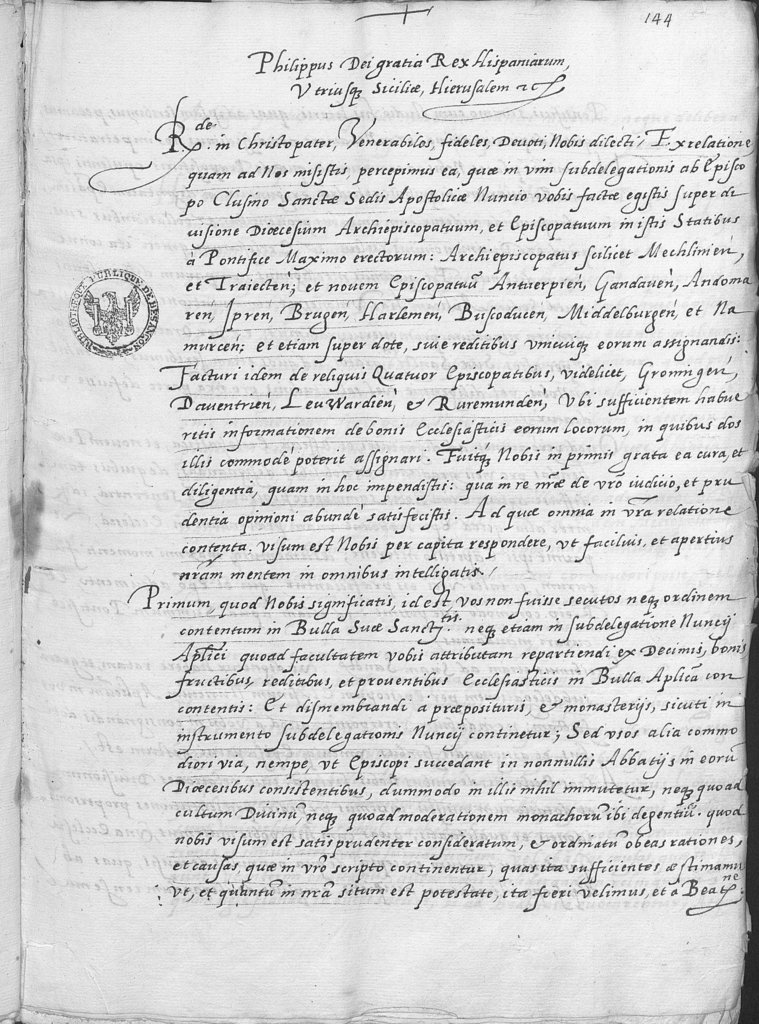 144
Philippus Dei gratia Rex Hispaniarum,
Utriusq; Siciliæ, Hierusalem etc.
Rde. in Christo pater, Venerabiles, fideles, Devoti, Nobis dilecti, Ex relatione
quam ad Nos misistis, percepimus ea, quæ in vim subdelegationis ab Episco
po Clusino Sanctæ Sedis Apostolicæ Nuncio vobis factæ egistis super di
visione Diœcesium Archiepiscopatuum, et Episcopatuum in istis Statibus
à Pontifice Maximo erectorum: Archiepiscopatus scilicet Mechlinień,
et Traiecteń; et novem Episcopatuū Antuerpień, Gandaveń, Andoma
reń, Ipreń, Brugeń, Harlemeń, Buscoduceń, Middelburgeń, et Na
murceń; et etiam super dote, sive reditibus unicuiq; eorum assignandis:
Facturi idem de reliquis Quatuor Episcopatibus, videlicet, Groningeń,
Daventrień, Leuwardień, & Ruremundeń, Ubi sufficientem habue
ritis informationem de bonis Ecclesiasticis eorum locorum, in quibus dos
illis commodè poterit assignari. Fuitq; Nobis in primis grata ea cura, et
diligentia, quam in hoc impendistis: qua in re nrǣ de vrō iudicio, et pru
dentia opinioni abundè satisfecistis. Ad quæ omnia in vrā relatione
contenta, visum est Nobis per capita respondere, ut facilius, et apertius
nrām mentem in omnibus intelligatis.
Primum, quod Nobis significatis, id est, vos non fuisse secutos neq; ordinem
contentum in Bulla Suæ Sanctitis. neq; etiam in subdelegatione Nuncij
Aplici quoad facultatem vobis attributam repartiendi ex Decimis, bonis
fructibus, reditibus, et proventibus Ecclesiasticis in Bulla Aplicā con
contentis: Et dismembrandi à præposituris, & monasterijs, sicuti in
instrumento subdelegationis Nuncij continetur; Sed usos alia commo
diori via, nempe, ut Episcopi succedant in nonnullis Abbatijs in eorū
Diœcesibus consistentibus, dummodo in illis nihil immutetur, neq; quoad
cultum Divinū, neq; quoad moderationem monachorum ibi degentiū: quod
nobis visum est satis prudenter consideratum, & ordinatū ob eas rationes,
et causas, quæ in vrō scripto continentur, quas ita sufficientes æstimamu
ut, et quantū in nrā situm est potestate, ita fieri velimus, et à Beatne.
BIBLIOTHÈQUE PUBLIQUE DE BESANÇON